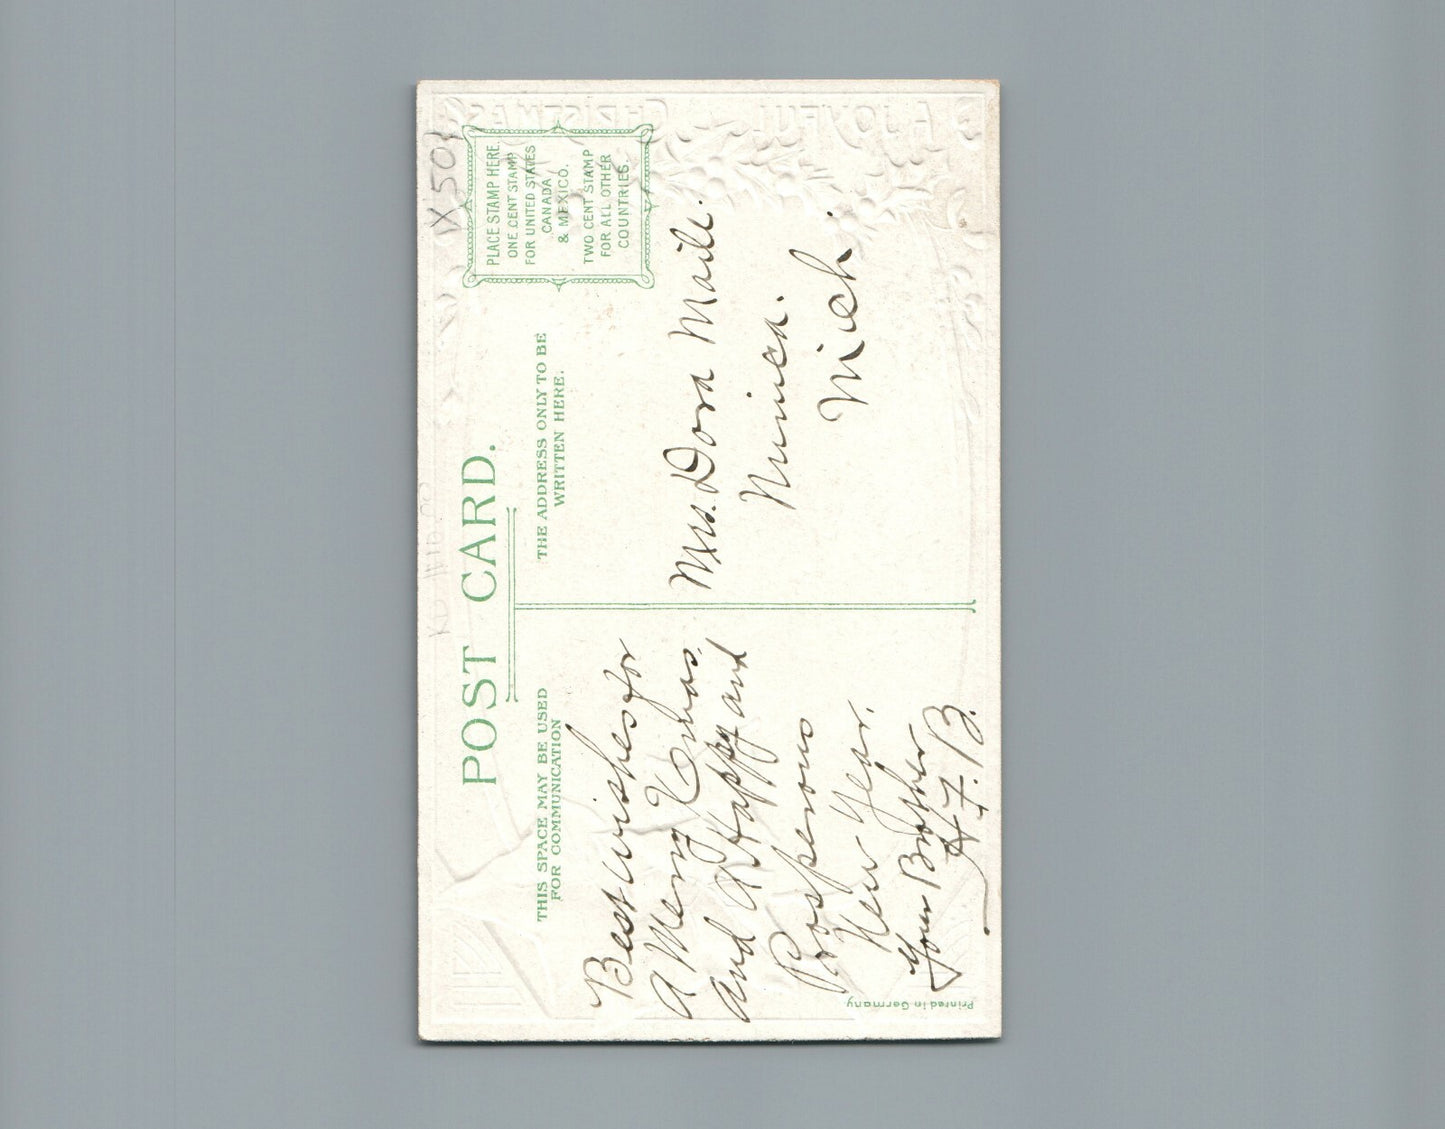 POST CARD.
THIS SPACE MAY BE USED
FOR COMMUNICATION
THE ADDRESS ONLY TO BE
WRITTEN HERE.
PLACE STAMP HERE.
ONE CENT STAMP
FOR UNITED STATES
CANADA
& MEXICO.
TWO CENT STAMP
FOR ALL OTHER
COUNTRIES.
Best wishes for
a Merry Xmas,
and a Happy and
Prosperous
New Year.
Your Brother
H. F. B.
Mrs. Dora Maile.
Nunica.
Mich.
Printed in Germany
A JOYFUL CHRISTMAS